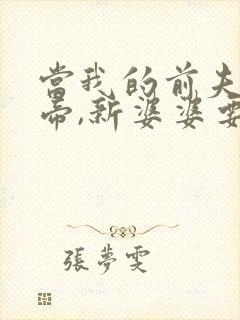 當我的前夫
帝,新婆婆要
張夢雯